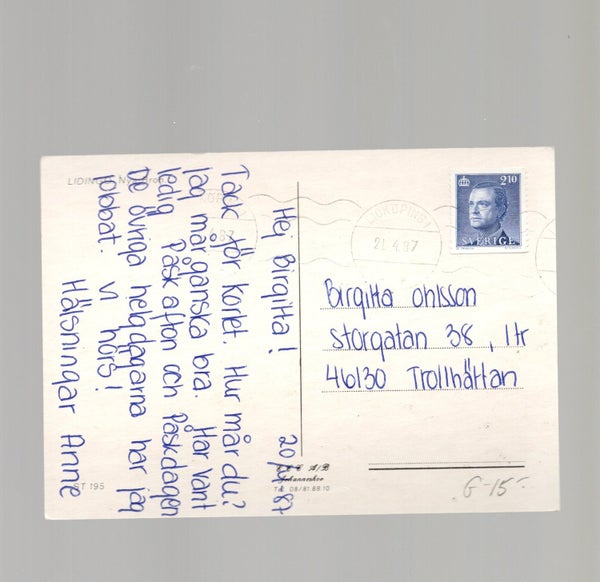 LIDINGÖ
Hej Birgitta! 20/4 87
Tack för kortet. Hur mår du?
Jag mår ganska bra. Har vant
ledig Påskafton och Påskdagen
De övriga helgdagarna har jag
jobbat. Vi hörs!
Hälsningar Anne
2.10
SVERIGE
JÖKÖPING 1
21.4.87
Birgitta Ohlsson
Storgatan 38, 1tr
46130 Trollhättan
A/B
Johanneshov
Tel. 08/81.68.10
ST 195
G-15:-